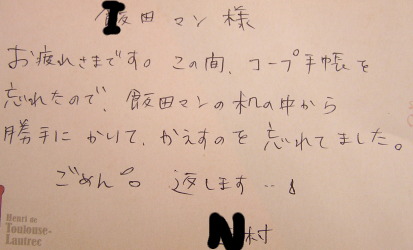 I飯田マン様
お疲れさまです。この間、コープ手帳を
忘れたので、飯田マンの机の中から
勝手にかりて、かえすのを忘れてました。
ごめん。返します…
N村
Henri de
Toulouse-
Lautrec